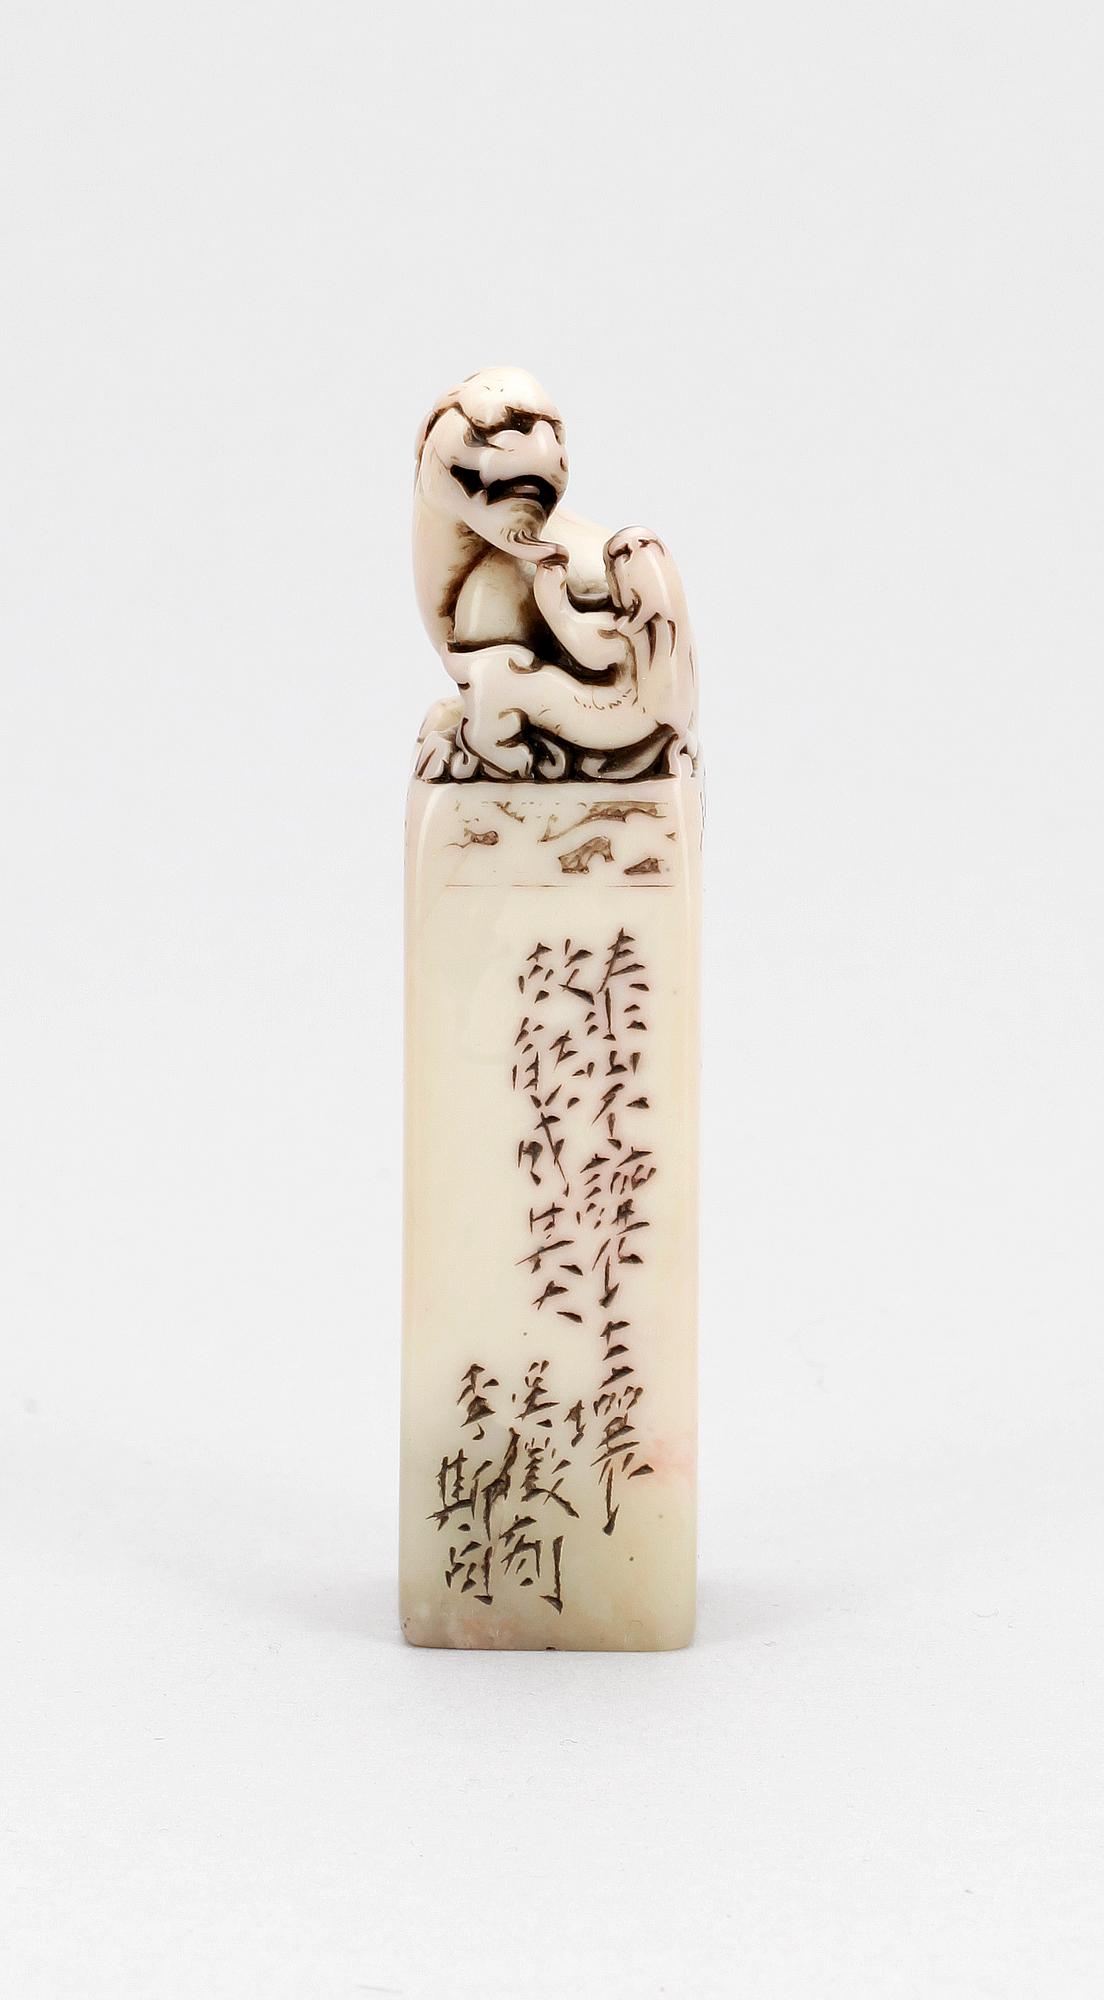 泰山不讓土壤
故能成其大
吳徵刻
李斯句